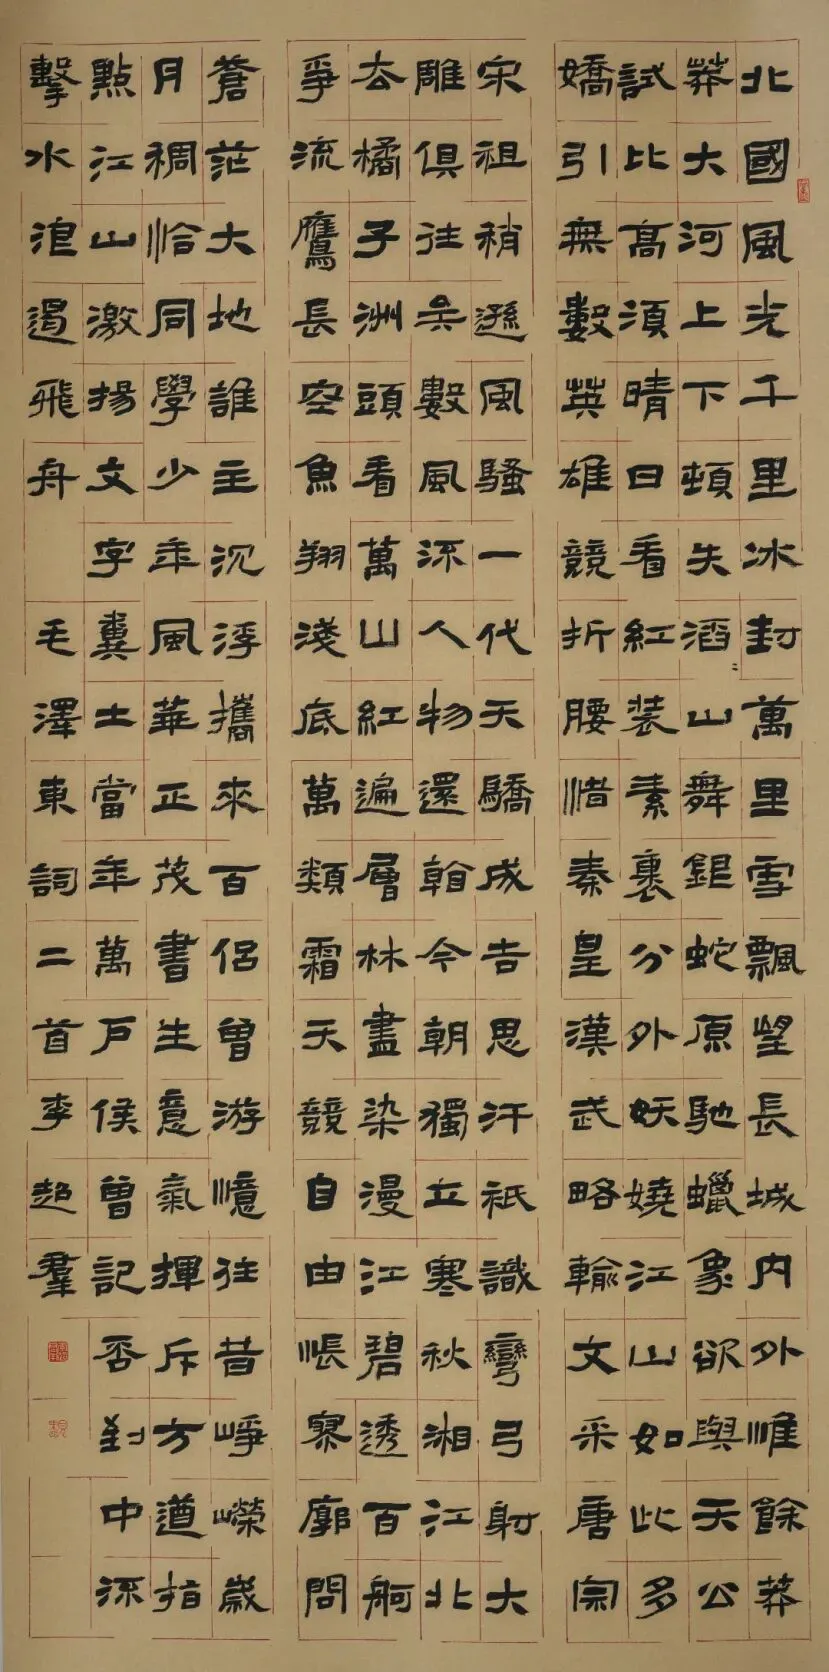 北國風光千里冰封萬里雪飄望長城内外惟餘莽
莽大河上下頓失滔〻山舞銀蛇原馳蠟象欲與天公
試比高須晴日看紅装素裹分外妖嬈江山如此多
嬌引無數英雄競折腰惜秦皇漢武略輸文采唐宗
宋祖稍遜風騷一代天驕成吉思汗祇識彎弓射大
雕俱往矣數風流人物還看今朝獨立寒秋湘江北
去橘子洲頭看萬山紅遍層林盡染漫江碧透百舸
爭流鷹長空魚翔淺底萬類霜天競自由悵寥廓問
蒼茫大地誰主沉浮攜來百侶曾游憶往昔崢嶸歲
月稠恰同學少年風華正茂書生意氣揮斥方遒指
點江山激揚文字糞土當年萬户侯曾記否到中流
擊水浪遏飛舟 毛澤東詞二首李超羣